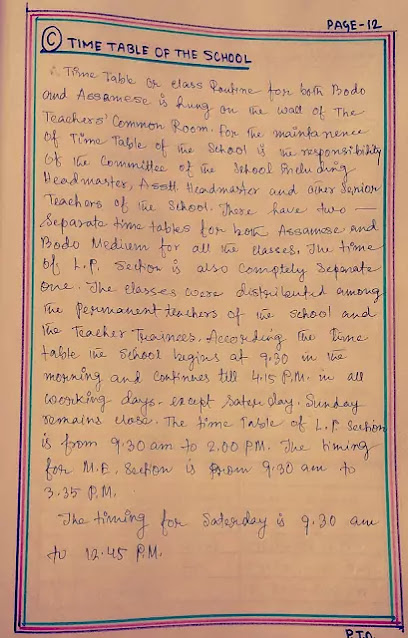 PAGE-12
(C) TIME TABLE OF THE SCHOOL
Time Table or class Routine for both Bodo
and Assamese is hung on the wall of The
Teachers' Common Room. For the maintanence
of Time Table of the School is the responsibility
of the Committee of the School including
Headmaster, Asstt. Headmaster and other Senior
Teachers of the School. There have two —
Separate time tables for both Assamese and
Bodo Medium for all the classes. The time
of L.P. Section is also Completely Separate
one. The classes were distributed among
the permanent teachers of the school and
the Teacher Trainees. According the time
table the School begins at 9.30 in the
morning and continues till 4.15 P.M. in all
working days. except Saterday. Sunday
remains close. The time Table of L.P. Section
is from 9.30 am to 2.00 PM. The timing
for M.E. Section is from 9.30 am to
3.35 P.M.
The timing for Saterday is 9.30 am
to 12.45 P.M.
P.T.O